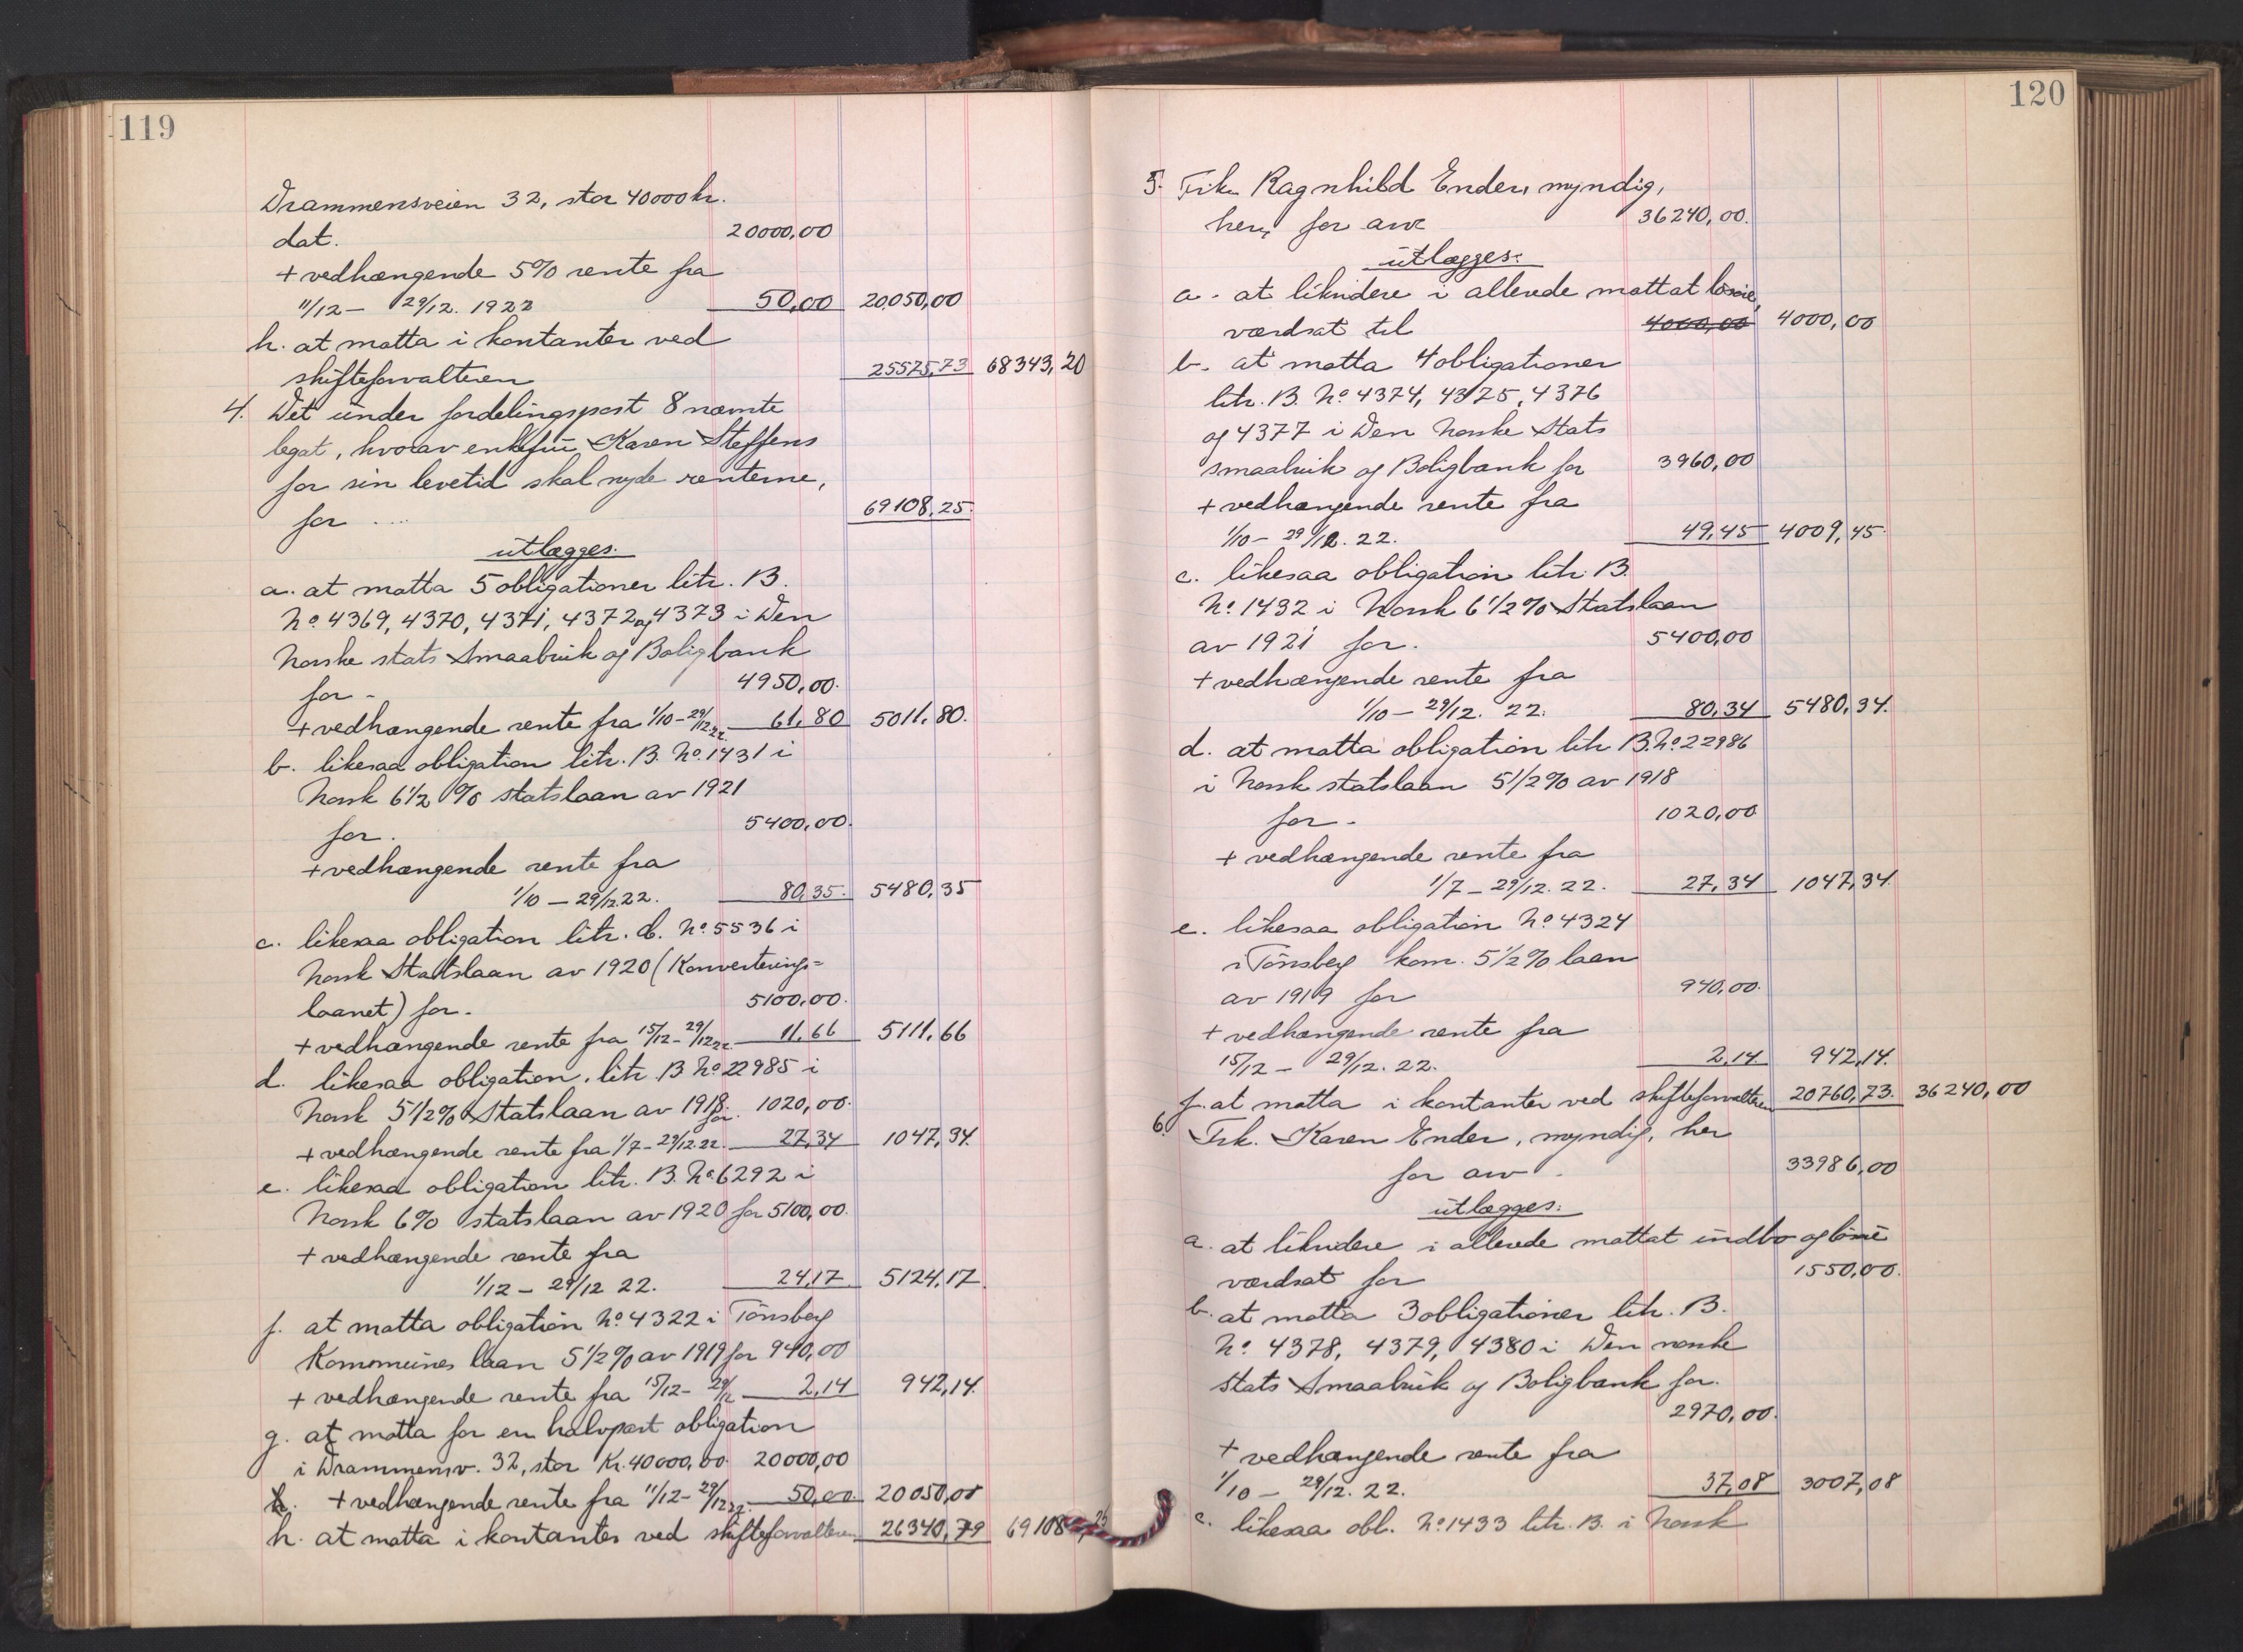 119
Drammensveien 32, stor 40000 kr.
dat. 20000,00
+ vedhængende 5% rente fra
11/12 – 29/12. 1922 50,00 20050,00
h. at motta i kontanter ved
skifteforvalteren 25575,73 68343,20
4. Det under fordelingspost 8 nævnte
legat, hvorav enkefru Karen Steffens
for sin levetid skal nyde renterne,
for .... 69108,25.
utlægges.
a. at motta 5 obligationer litr. B.
No. 4369, 4370, 4371, 4372 og 4373 i Den
Norske stats Smaabruk og Boligbank
for - 4950,00.
+ vedhængende rente fra 1/10 – 29/12 22. 61,80 5011,80.
b. likesaa obligation litr. B. No. 1431 i
Norsk 6 1/2 % statslaan av 1921
for. 5400,00.
+ vedhængende rente fra
1/10 – 29/12 22. 80,35. 5480,35
c. likesaa obligation litr. d. No. 5536 i
Norsk Statslaan av 1920 (Konverterings=
laanet) for. 5100,00.
+ vedhængende rente fra 15/12 – 29/12 22 11,66 5111,66
d. likesaa obligation, litr. B No 22985 i
Norsk 5 1/2 % Statslaan av 1918 for 1020,00.
+ vedhængende rente fra 1/7 – 29/12 22. 27,34 1047,34.
e. likesaa obligation litr. B. No. 6292 i
Norsk 6% statslaan av 1920 for 5100,00.
+ vedhængende rente fra
1/12 – 29/12 22. 24,17 5124,17.
f. at motta obligation No. 4322 i Tönsberg
Kommunes laan 5 1/2 % av 1919 for 940,00
+ vedhængende rente fra 15/12 – 29/12 2,14 942,14.
g. at motta for en halvpart obligation
i Drammensv. 32, stor Kr. 40000,00 20000,00
h. + vedhængende rente fra 11/12 – 29/12 22. 50,00. 20050,00
h. at motta i kontanter ved skifteforvalteren 26340,79 69108,25
120
5. Frk. Ragnhild Ender, myndig,
her, for arv 36240,00.
utlægges:
a. at likvidere i allerede mottat løsøre,
værdsat til 4000,00 4000,00
b. at motta 4 obligationer
litr. B. No. 4374, 4375, 4376
og 4377 i Den Norske Stats
smaabruk og Boligbank for 3960,00
+ vedhængende rente fra
1/10 – 29/12. 22. 49,45 4009,45.
c. likesaa obligation litr. B.
No. 1432 i Norsk 6 1/2 % Statslaan
av 1921 for. 5400,00
+ vedhængende rente fra
1/10 – 29/12. 22. 80,34 5480,34.
d. at motta obligation litr B. No 22986
i Norsk statslaan 5 1/2 % av 1918
for. 1020,00
+ vedhængende rente fra
1/7 – 29/12. 22. 27,34 1047,34.
e. likesaa obligation No. 4324
i Tönsberg kom. 5 1/2 % laan
av 1919 for 940,00.
+ vedhængende rente fra
15/12 – 29/12. 22. 2,14 942,14.
f. at motta i kontanter ved skifteforvalteren 20760,73. 36240,00
6. Frk. Karen Ender, myndig, her
for arv. 33986,00
utlægges:
a. at likvidere i allerede mottat indbo og løsøre
værdsat for 1550,00.
b. at motta 3 obligationer litr. B.
No. 4378, 4379, 4380 i Den norske
stats Smaabruk og Boligbank for.
2970,00.
+ vedhængende rente fra
1/10 – 29/12. 22. 37,08 3007,08
c. likesaa obl. No. 1433 litr. B. i Norsk